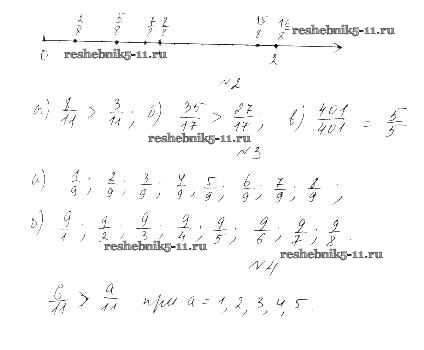 2/8 5/8 7/8 8/8 15/8 16/8 reshebnik5-11.ru
0 reshebnik5-11.ru 2
№2
а) 8/11 > 3/11; б) 35/17 > 27/17; в) 401/401 = 5/5
reshebnik5-11.ru
№3
а) 1/9; 2/9; 3/9; 4/9; 5/9; 6/9; 7/9; 8/9;
б) 9/1; 9/2; 9/3; 9/4; 9/5; 9/6; 9/7; 9/8.
reshebnik5-11.ru reshebnik5-11.ru
№4
6/11 > a/11 при a = 1, 2, 3, 4, 5.